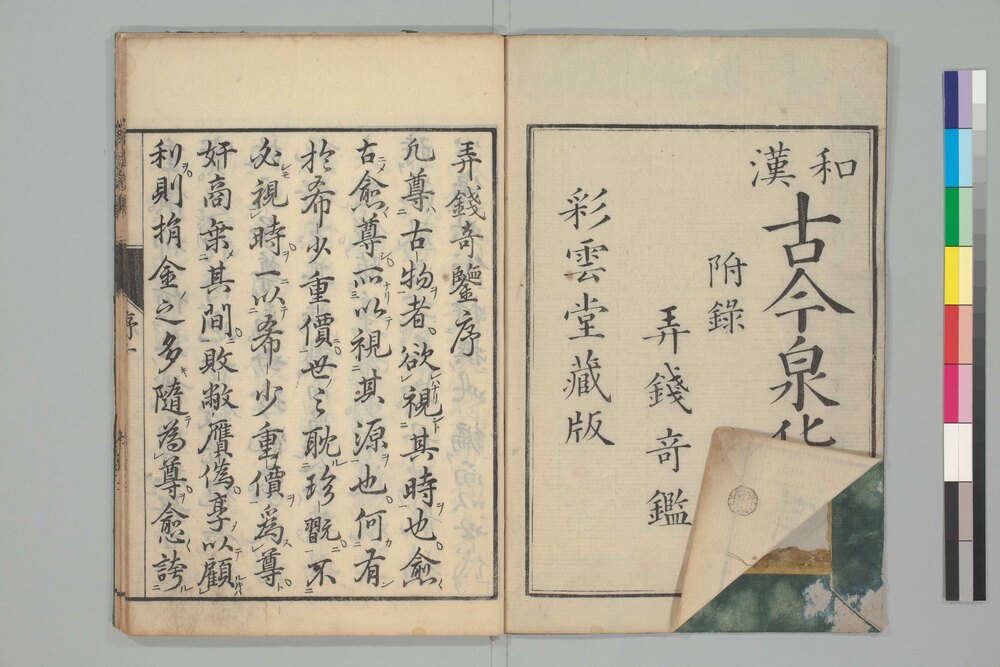 和漢
古今泉
附錄
弄錢奇鑑
彩雲堂藏版
弄錢奇鑒序
凢尊古物者。欲視其時也。愈
古愈尊。所以視其源也。何有
於希少重價。世之耽珍翫。不
必視時。一以希少重價為尊。
奸商乗其間。敗敝贋偽。享以顧
利。則捐金之多。隨為尊。愈誇
序一